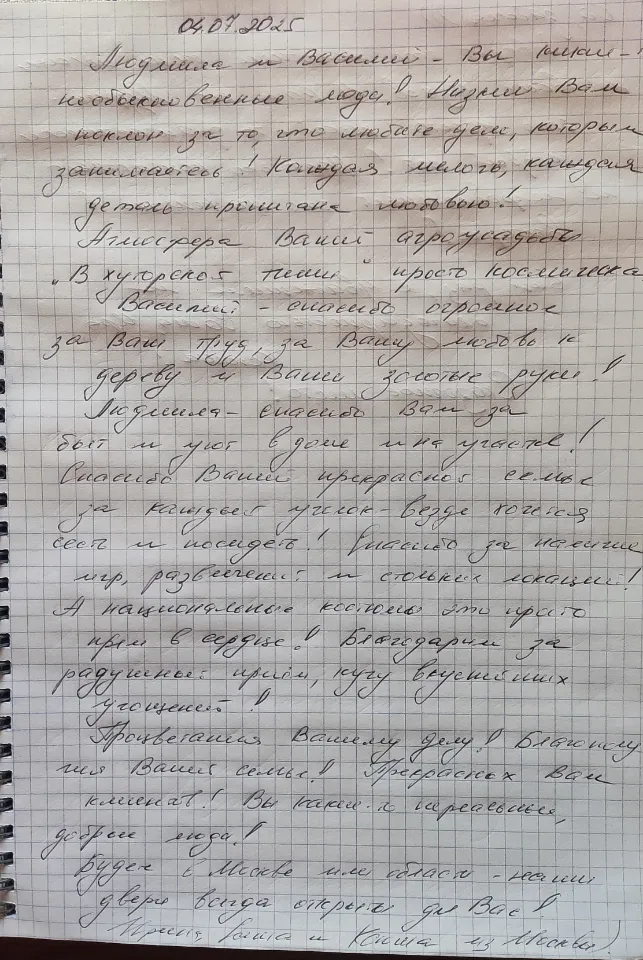 04.07.2025
Людмила и Василий - Вы
необыкновенные люди! Низкий Вам
поклон за то, что любите дело, которым
занимаетесь! Каждая мелочь, каждая
деталь пропитана любовью!
Атмосфера Вашей агроусадьбы
"В хуторской тиши" просто космическая
Василий - спасибо огромное
за Ваш труд, за Вашу любовь к
дереву и Ваши золотые руки!
Людмила - спасибо Вам за
быт и уют в доме и на участке!
Спасибо Вашей прекрасной семье
за каждый уголок - везде хочется
сесть и посидеть! Спасибо за наличие
игр, развлечений и стольких локаций!
А национальные костюмы это просто
прям в сердце! Благодарим за
радушный приём, кучу вкуснейших
угощений!
Процветания Вашему делу! Благополу
чия Вашей семье! Прекрасных Вам
клиентов! Вы какие-то нереальные,
добрые люди!
Будете в Москве или области - наши
двери всегда открыты для Вас!
Ирина, и из Москвы)